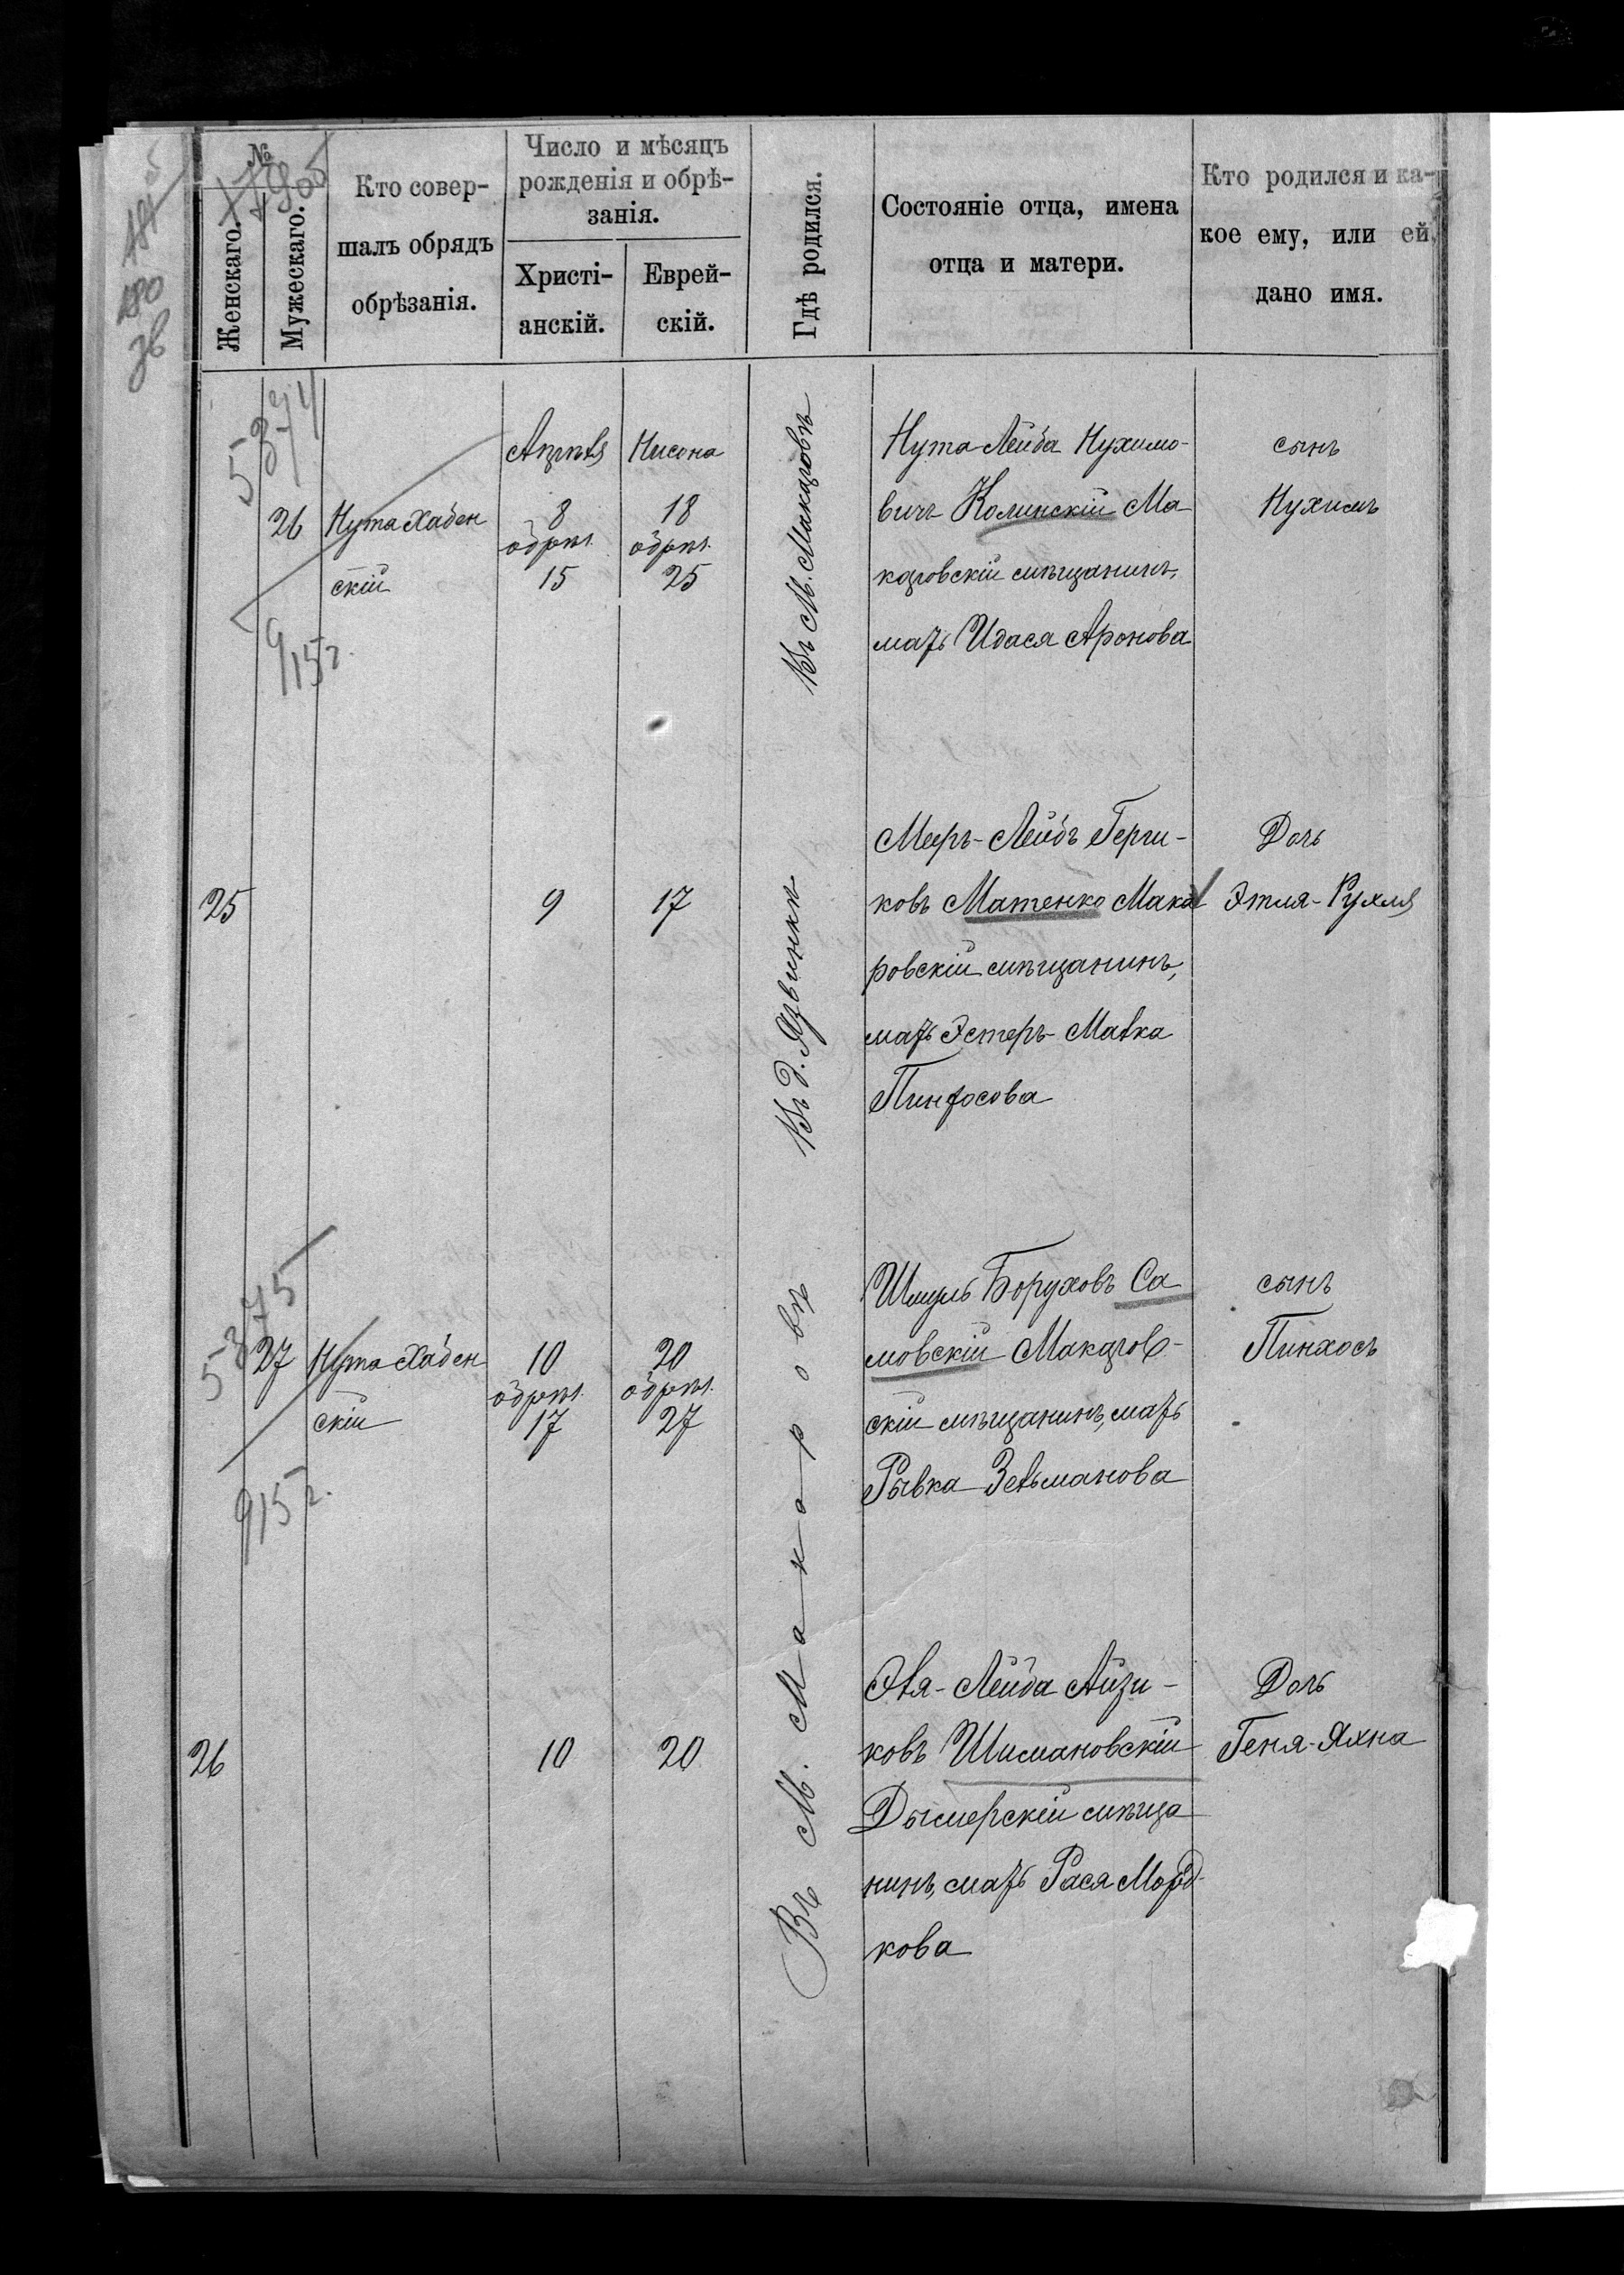 №
Женскаго.
Мужескаго.
Кто совер-
шалъ обрядъ
обрѣзанія.
Число и мѣсяцъ
рожденія и обрѣ-
занія.
Христі-
анскій.
Еврей-
скій.
Гдѣ родился.
Состояніе отца, имена
отца и матери.
Кто родился и ка-
кое ему, или ей,
дано имя.
180
5374
26
Нута Хабен
скій
915 г.
Апрѣля
8
обрѣз.
15
Нисона
18
обрѣз.
25
Въ М. Макаровѣ
Нута-Лейба Нухимо-
вичъ Колинскій Ма-
каровскій мѣщанинъ,
мать Идася Аронова
сынъ
Нухимъ
25
9
17
Въ д. Язвинкѣ
Мееръ-Лейбъ Герш-
ковъ Матенко Мака
ровскій мѣщанинъ,
мать Эстеръ-Малка
Пинхосова
Дочь
Этля-Рухля
5375
27
Нута Хабен
скій
915 г.
10
обрѣз.
17
20
обрѣз.
27
Въ М. Макаровѣ
Шмуль Боруховъ Са
мовскій Макаров-
скій мѣщанинъ, мать
Рывка Зельманова
сынъ
Пинхосъ
26
10
20
Эля-Лейба Айзи-
ковъ Шимановскій
Дымерскій мѣща
нинъ, мать Рася Морд-
кова
Дочь
Геня-Яхна